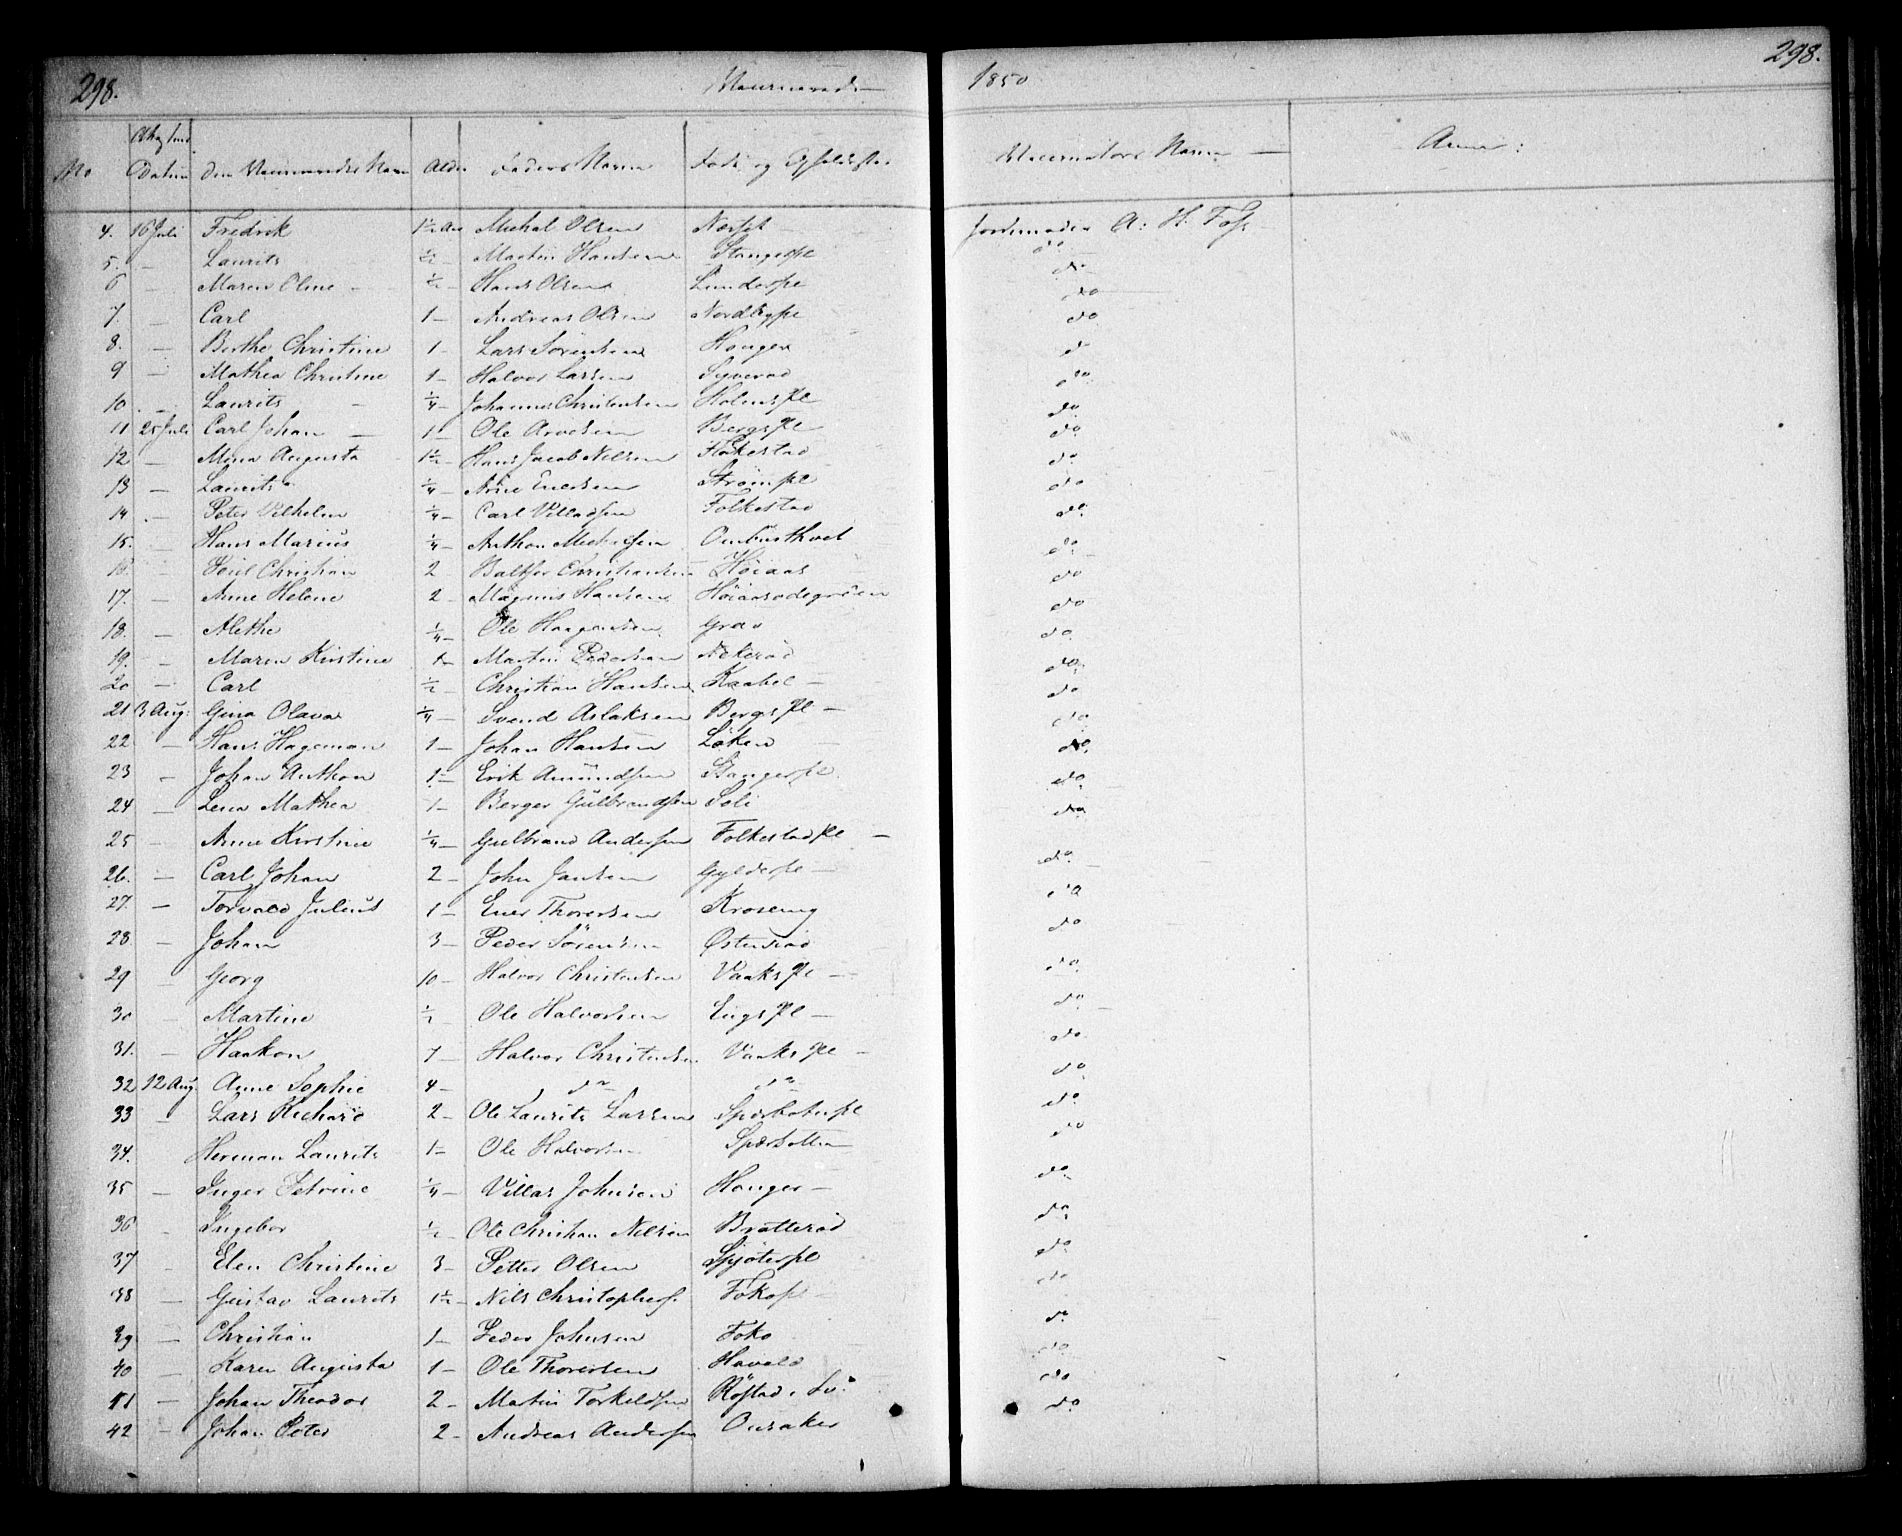 298. Vaccinerede 1850 298.
No Datum den Vaccineredes Navn Alder Faders Navn Føde og Opholdssted Vaccinators Navn Anm:
4. 16 Juli Fredrik 1½ Aar Michal Olsen Nærset Jordmoder A. H. Foss
5. — Laurits ½ — Martin Hansen Stangespl do
6 — Maren Oline ½ — Hans Olsen Lunderpl do
7. — Carl 1 — Andreas Olsen Nordbypl do
8. — Berthe Christine 1 — Lars Sørensen Honger do
9 — Mathea Christine 1 — Halvor Larsen Syverød do
10 — Laurits ¼ — Johannes Christensen Holens Pl do
11 25 Juli Carl Johan — 1 — Ole Arvesen Bergs Pl do
12 — Mina Augusta 1½ — Hans Jacob Nilsen Folkestad do
13 — Laurits ¼ — Arne Enersen Strømpl do
14 — Peter Vilhelm ¼ — Carl Villadsen Folkestad do
15. — Hans Marius ¼ — Anthon Michelsen Ombusthvet do
16. — Christian 2 Baltser Christiansen Høiaas do
17. — Anne Helene 2 — Magnus Hansen Høiaasødegården do
18. — Alethe ¼ — Ole Haagensen Grav do
19. — Maren Kirstine 1 — Martin Pedersen Nekerød do
20 — Carl ½ — Christian Hansen Kaabel — do
21 3 Aug: Gina Olava ¼ — Svend Aslaksen Bergs Pl — do
22 — Hans Hageman 1 — Johan Hansen Løken do
23 — Johan Anthon 1½ — Erik Amundsen Stangerpl do
24 — Lena Mathea 1 — Berger Gulbrandsen Soli do
25 — Anne Kirstine ¼ — Gulbrand Andersen Folkestad Pl — do
26. — Carl Johan 2 — John Jansen Gyldepl — do
27. — Torvald Julius 1 — Ener Thoresen Krosening do
28 — Johan 3 — Peder Sørensen Østenrød do
29 — Georg 10 — Halvor Christensen Vaaks Pl — do
30 — Martine ½ Ole Halvorsen Engs Pl — do
31. — Haakon 7 — Halvor Christensen Vaaks Pl — do
32 12 Aug. Anne Sophie 4 — do do do
33 — Lars Richard 2 — Ole Laurits Larsen Sparbotnpl do
34. Herman Laurits 1 — Ole Halvorsen do
35 — Inger Petrine ¼ — Villas Johnsen Honger — do
36 — Ingebor ½ — Ole Christian Nilsen Bratterød do
37 — Elen Christine 3 — Petter Olsen Spjøterpl do
38 — Gustav Laurits 1½ — Nils Christophers. Fokopl — do
39 — Christian 1 — Peder Johnsen Foko do
40 — Karen Augusta 1 — Ole Thoresen Havold do
41 — Johan Theodor 2 — Martin Torkeldsen Røstad do
42 — Johan Peter 2 — Andreas Andersen Onsaker